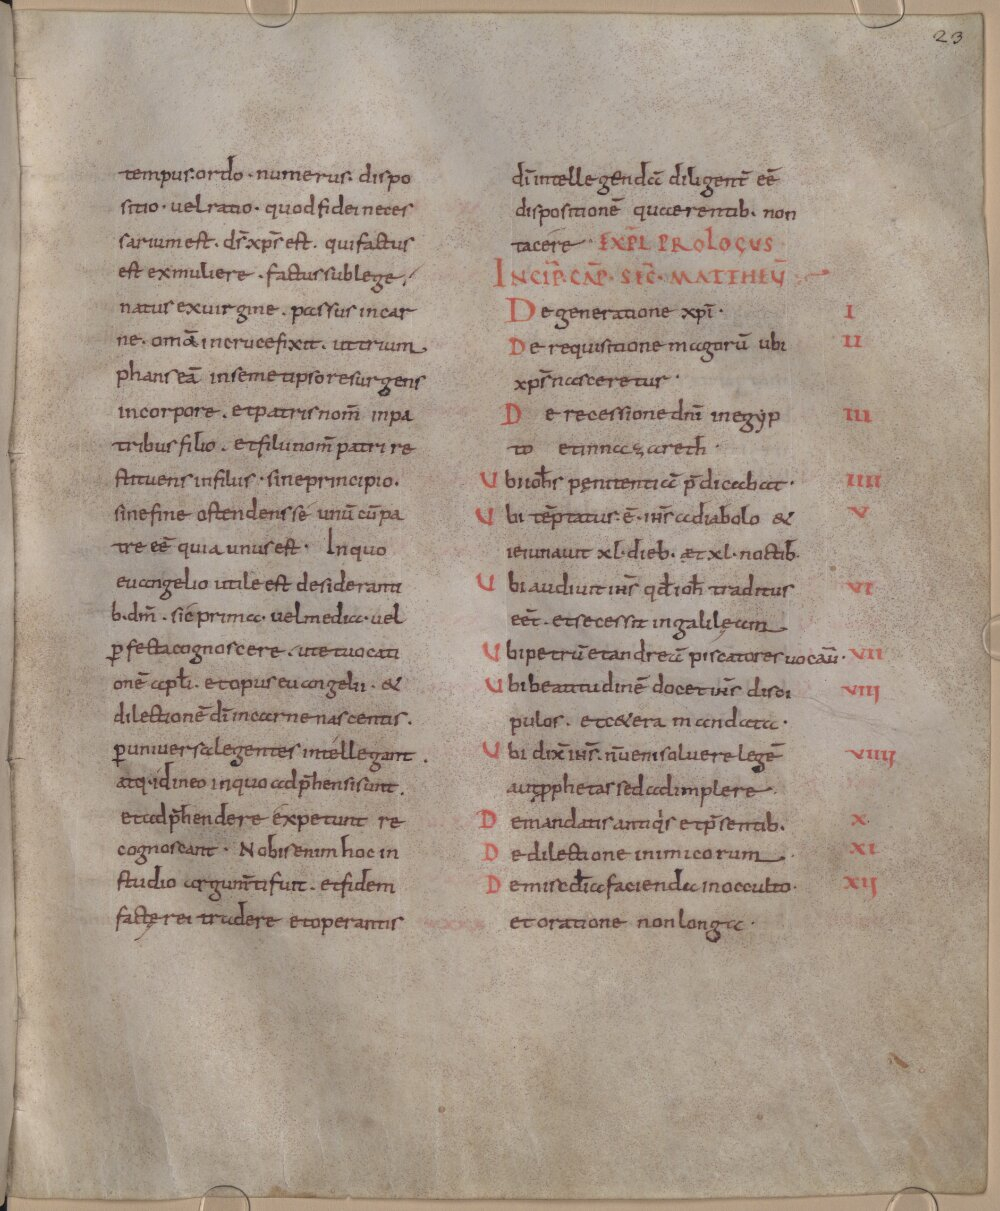 23
tempus· ordo · numerus· dispo
sitio · uel ratio · quod fidei neces
sarium est · d̄s xp̄s est · qui factus
est ex muliere · factus sub lege ·
natus ex uirgine · passus in car
ne · omā in cruce fixit · ut trium
phans eā in semetipso resurgens
in corpore · et patris nom̄ in pa
tribus filio · et filii nom̄ patri re
stituens in filiis · sine principio ·
sine fine ostendens se unū cū pa
tre eē quia unus est · In quo
euangelio utile est desideranti
b· dm̄ · sic prima · uel media · uel
ꝑfecta cognoscere · ut et uocati
onē apl̄i · et opus euangelii · &
dilectionē dī in carne nascentis ·
ꝑ uniuersa legentes intellegant ·
atq· id in eo in quo adp̄hensi sunt ·
et adp̄hendere expetunt re
cognoscant · Nobis enim hoc in
studio argum̄ti fuit · et fidem
factę rei tradere et operantis
dī intellegendā diligent̄ eē
dispositionē quaerentib· non
tacere · EXPL̄ PROLOGUS
INCIP̄ CAP̄ · SEC̄ · MATTHEŪ
De generatione xp̄i · I
De requisitione magorū ubi II
xp̄s nasceretur ·
De recessione dn̄i in egyp III
to et in nazareth ·
Ubi ioh̄s penitentiā p̄dicabat · IIII
Ubi tēptatus · ē · ih̄s a diabolo & V
ieiunauit xl· dieb· æt xl· noctib·
Ubi audiuit ih̄s qd̄ ioh̄ traditus VI
eēt · et secessit in galileam
Ubi petrū et andreū piscatores uocau̅· VII
Ubi beatitudinē docet ih̄s disci VIII
pulos · et cetera mandata ·
Ubi dix̄ ih̄s · n̄ ueni soluere legē VIIII
aut ꝓphetas sed adimplere ·
De mandatis antiqis et p̄sentib· X
De dilectione inimicorum · XI
De misedīa facienda in occulto · XII
et oratione non longa ·